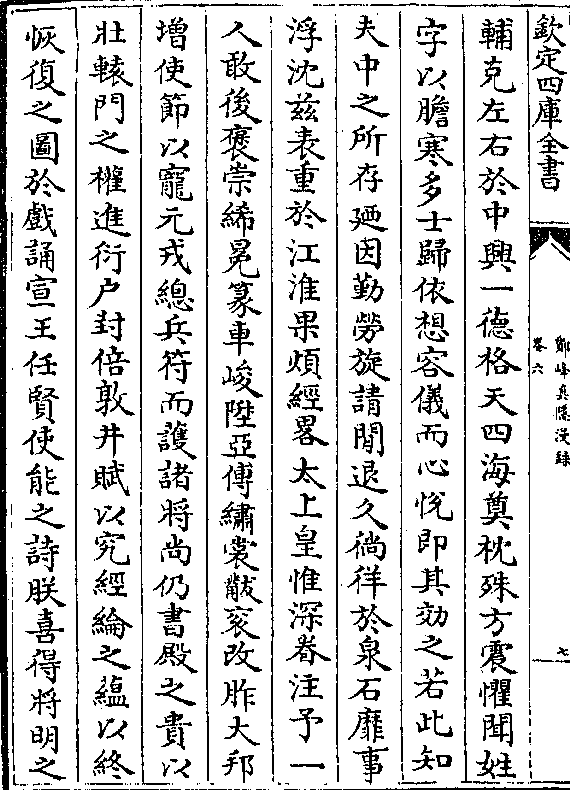 欽定四庫全書
鄮峰真隱漫錄
卷六
七
輔克左右於中興一德格天四海奠枕殊方震懼聞姓
字以膽寒多士歸依想容儀而心悅即其効之若此知
夫中之所存廼因勤勞旋請閒退久徜徉於泉石靡事
浮沈兹表重於江淮果煩經畧太上皇惟深眷注予一
人敢後褒崇絺冕篆車峻陞亞傅繡裳黻衮改胙大邦
增使節以寵元戎總兵符而護諸將尚仍書殿之貴以
壯轅門之權進衍户封倍敦井賦以究經綸之蘊以終
恢復之圖於戲誦宣王任賢使能之詩朕喜得將明之